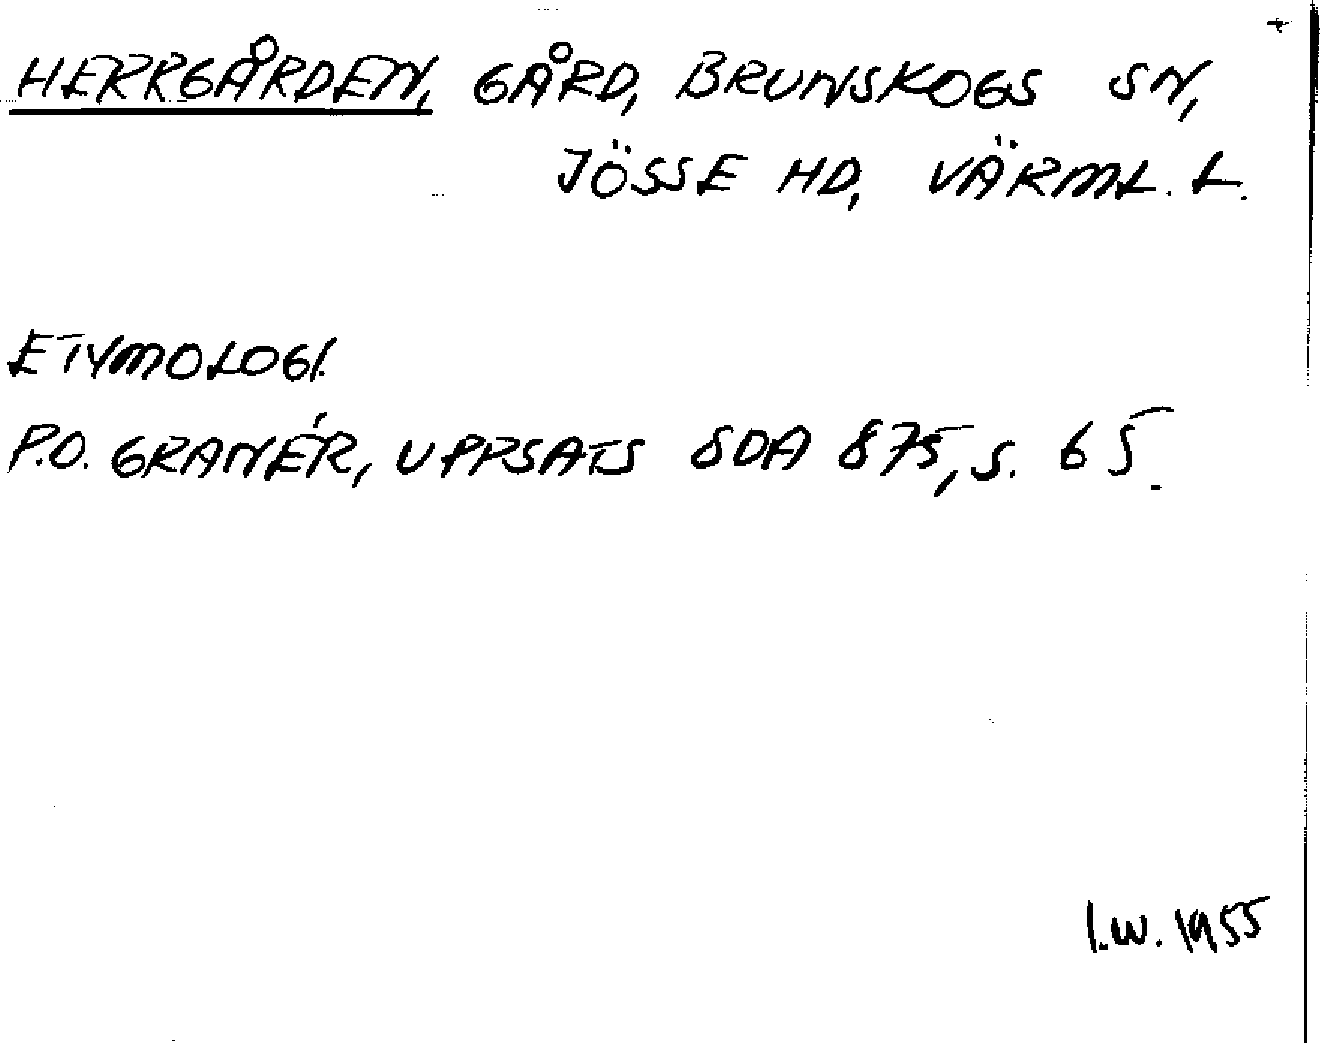 HERRGÅRDEN, GÅRD, BRUNSKOGS SN,
JÖSSE HD, VÄRML. L.
ETYMOLOGI.
P.O. GRANÉR, UPPSATS SOA 875, S. 65.
I.W. 1955